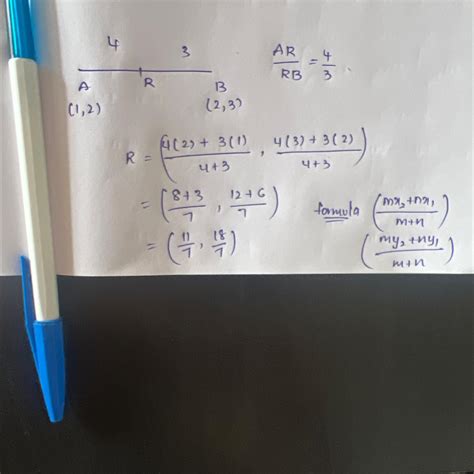 4 3
A R B
(1,2) (2,3)
AR/RB = 4/3 .
R = ( 4(2) + 3(1) / 4+3 , 4(3) + 3(2) / 4+3 )
= ( 8+3 / 7 , 12+6 / 7 )
= ( 11/7 , 18/7 )
formula ( mx₂+nx₁ / m+n )
( my₂+ny₁ / m+n )